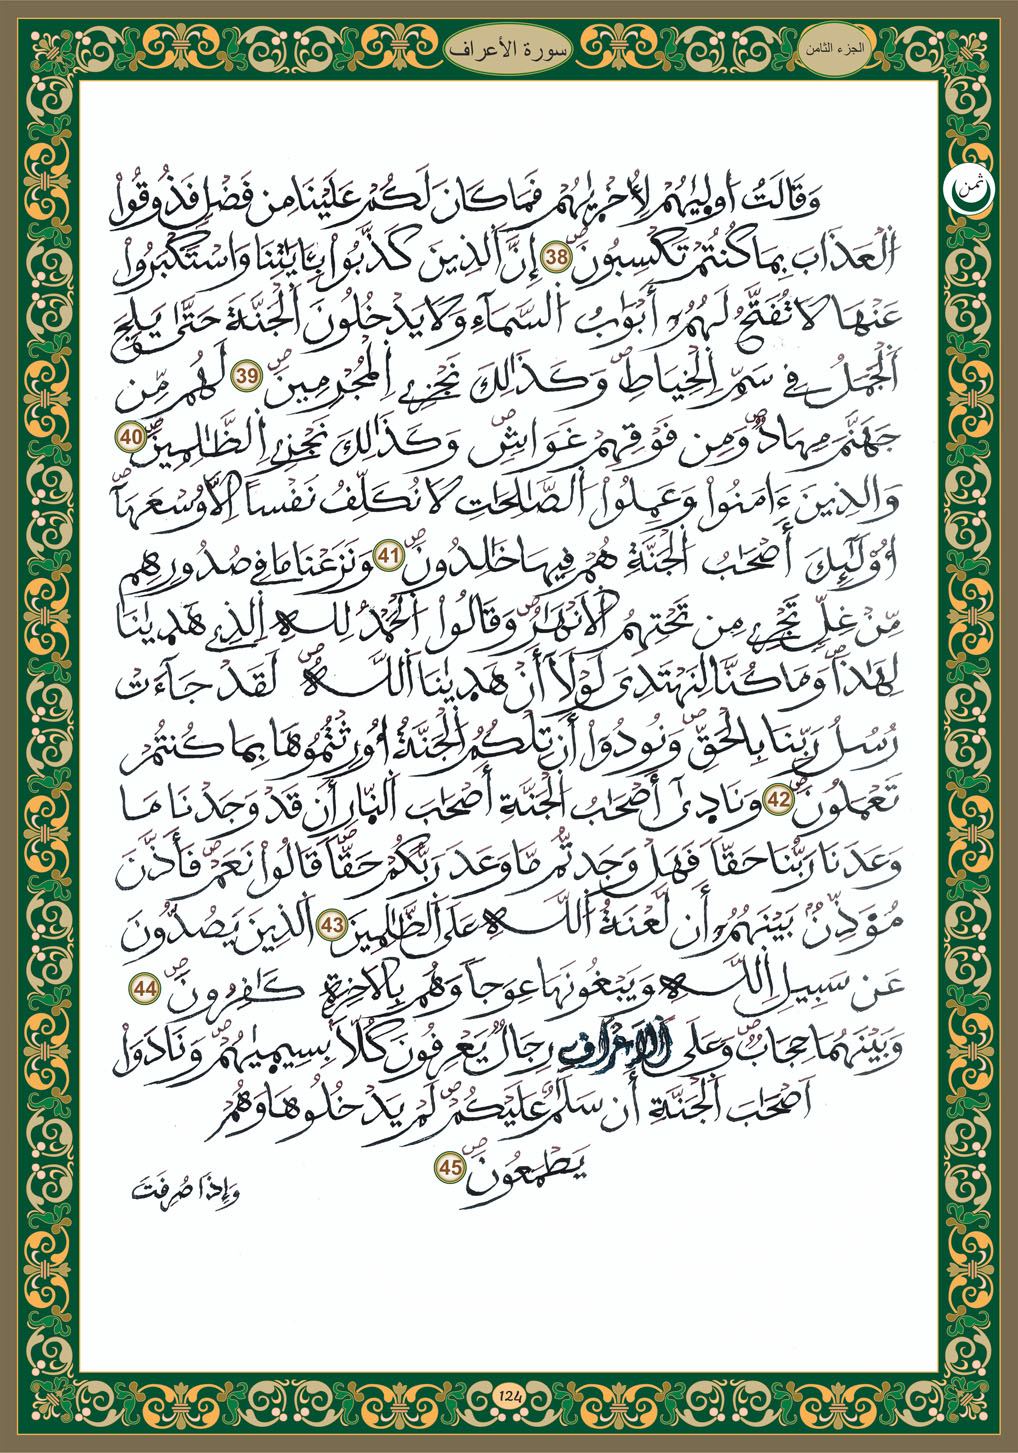 سورة الأعراف
الجزء الثامن
ثمن
وَقَالَتُ اولِيٰهُمْ لِأُخْرِيٰهُمْ فَمَا كَانَ لَكُمْ عَلَيْنَا مِن فَضْلٍ فَذُوقُوا
الْعَذَابَ بِمَا كُنتُمْ تَكْسِبُونَ ص 38 إِنَّ الَذِينَ كَذَّبُوا بِـَٔايَٰتِنَا وَاسْتَكْبَرُوا
عَنْهَا لَا تُفَتَّحُ لَهُمُ أَبْوَٰبُ السَّمَآءِ وَلَا يَدْخُلُونَ الْجَنَّةَ حَتَّىٰ يَلِجَ
الْجَمَلُ فِي سَمِّ الْخِيَاطِ ص وَكَذَٰلِكَ نَجْزِي الْمُجْرِمِينَ ص 39 لَهُم مِّن
جَهَنَّمَ مِهَادٌ ص وَمِن فَوْقِهِمْ غَوَاشٍ ص وَكَذَٰلِكَ نَجْزِي الظَّٰلِمِينَ ص 40
وَالذِينَ ءَامَنُوا وَعَمِلُوا الصَّٰلِحَٰتِ لَا نُكَلِّفُ نَفْساً اِلَّا وُسْعَهَا ص
أُوْلَٰٓئِكَ أَصْحَٰبُ الْجَنَّةِ هُمْ فِيهَا خَٰلِدُونَ ص 41 وَنَزَعْنَا مَا فِي صُدُورِهِم
مِّنْ غِلٍّ تَجْرِي مِن تَحْتِهِمُ الَانْهَٰرُ ص وَقَالُوا الْحَمْدُ لِلهِ الذِي هَدِيٰنَا
لِهَٰذَا ص وَمَا كُنَّا لِنَهْتَدِيَ لَوْلَا أَنْ هَدِيٰنَا اَللَّهُ ص لَقَدْ جَآءَتْ
رُسُلُ رَبِّنَا بِالْحَقِّ ص وَنُودُوا أَن تِلْكُمُ الْجَنَّةُ أُورِثْتُمُوهَا بِمَا كُنتُمْ
تَعْمَلُونَ ص 42 وَنَادِىٰ أَصْحَٰبُ الْجَنَّةِ أَصْحَٰبَ النَّارِ أَن قَدْ وَجَدْنَا مَا
وَعَدَنَا رَبُّنَا حَقّاً فَهَلْ وَجَدتُّم مَّا وَعَدَ رَبُّكُمْ حَقّاً ص قَالُوا نَعَمْ ص فَأَذَّنَ
مُوَذِّنٌ بَيْنَهُمُ أَن لَّعْنَةُ اللَّهِ عَلَى الظَّٰلِمِينَ 43 الذِينَ يَصُدُّونَ
عَن سَبِيلِ اِللَّهِ وَيَبْغُونَهَا عِوَجاً وَهُم بِالَاخِرَةِ كَٰفِرُونَ ص 44
وَبَيْنَهُمَا حِجَابٌ ص وَعَلَى اَلَاعْرَافِ رِجَالٌ يَعْرِفُونَ كُلّاً بِسِيمِيٰهُمْ ص وَنَادَوَا
اَصْحَٰبَ الْجَنَّةِ أَن سَلَٰمٌ عَلَيْكُمْ ص لَمْ يَدْخُلُوهَا وَهُمْ
يَطْمَعُونَ ص 45
وَإِذَا صُرِفَتَ
124